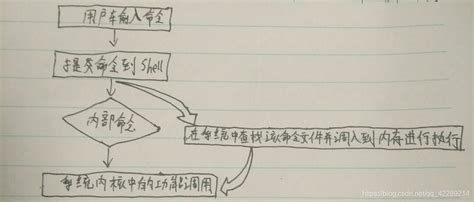 用户输入命令
提交命令到Shell
内部命令
在系统中查找该命令文件并调入到内存进行执行
系统内核中的功能调用
https://blog.csdn.net/qq_42289214